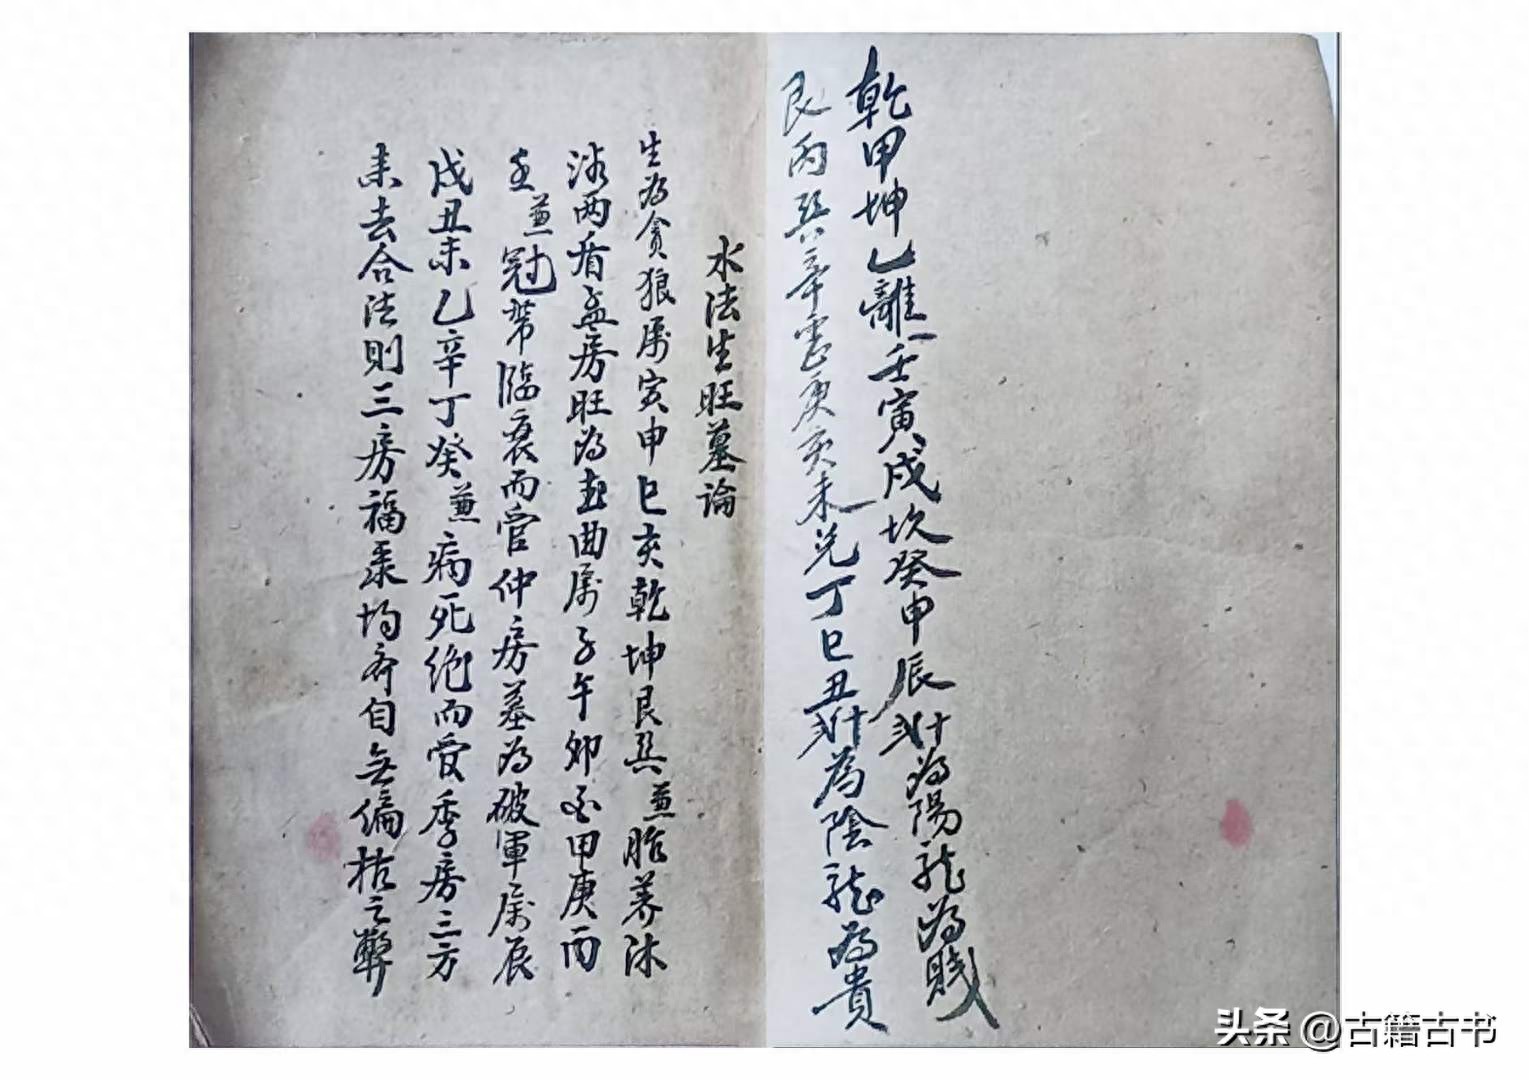 乾甲坤乙離壬寅戌坎癸申辰 為陽龍為賤
艮丙巽辛震庚亥未兌丁巳丑 為陰龍為貴
水法生旺墓論
生為貪狼属寅申巳亥乾坤艮巽兼胎养沐
浴两 孟房旺為武曲属子午卯酉甲庚丙
壬兼冠帶臨衰而官仲房墓為破軍属辰
戌丑未乙辛丁癸兼病死绝而受季房三方
来去合法则三房福泽均齐自无偏枯之弊
头条 @古籍古书